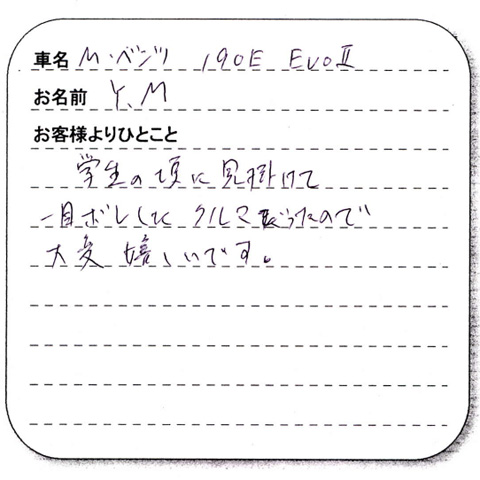 車名 M・ベンツ 190E EvoⅡ
お名前 Y.M
お客様よりひとこと
学生の頃に見掛けて
一目ボレした クルマ だったので
大変 嬉しいです。